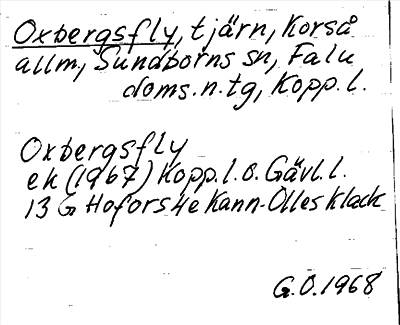 Oxbergsfly, tjärn, Korså
allm, Sundborns sn, Falu
doms.n.tg, Kopp.l.
Oxbergsfly
ek (1967) Kopp.l.o.Gävl.l.
13 G Hofors 4e Kann-Olles klack
G.O.1968